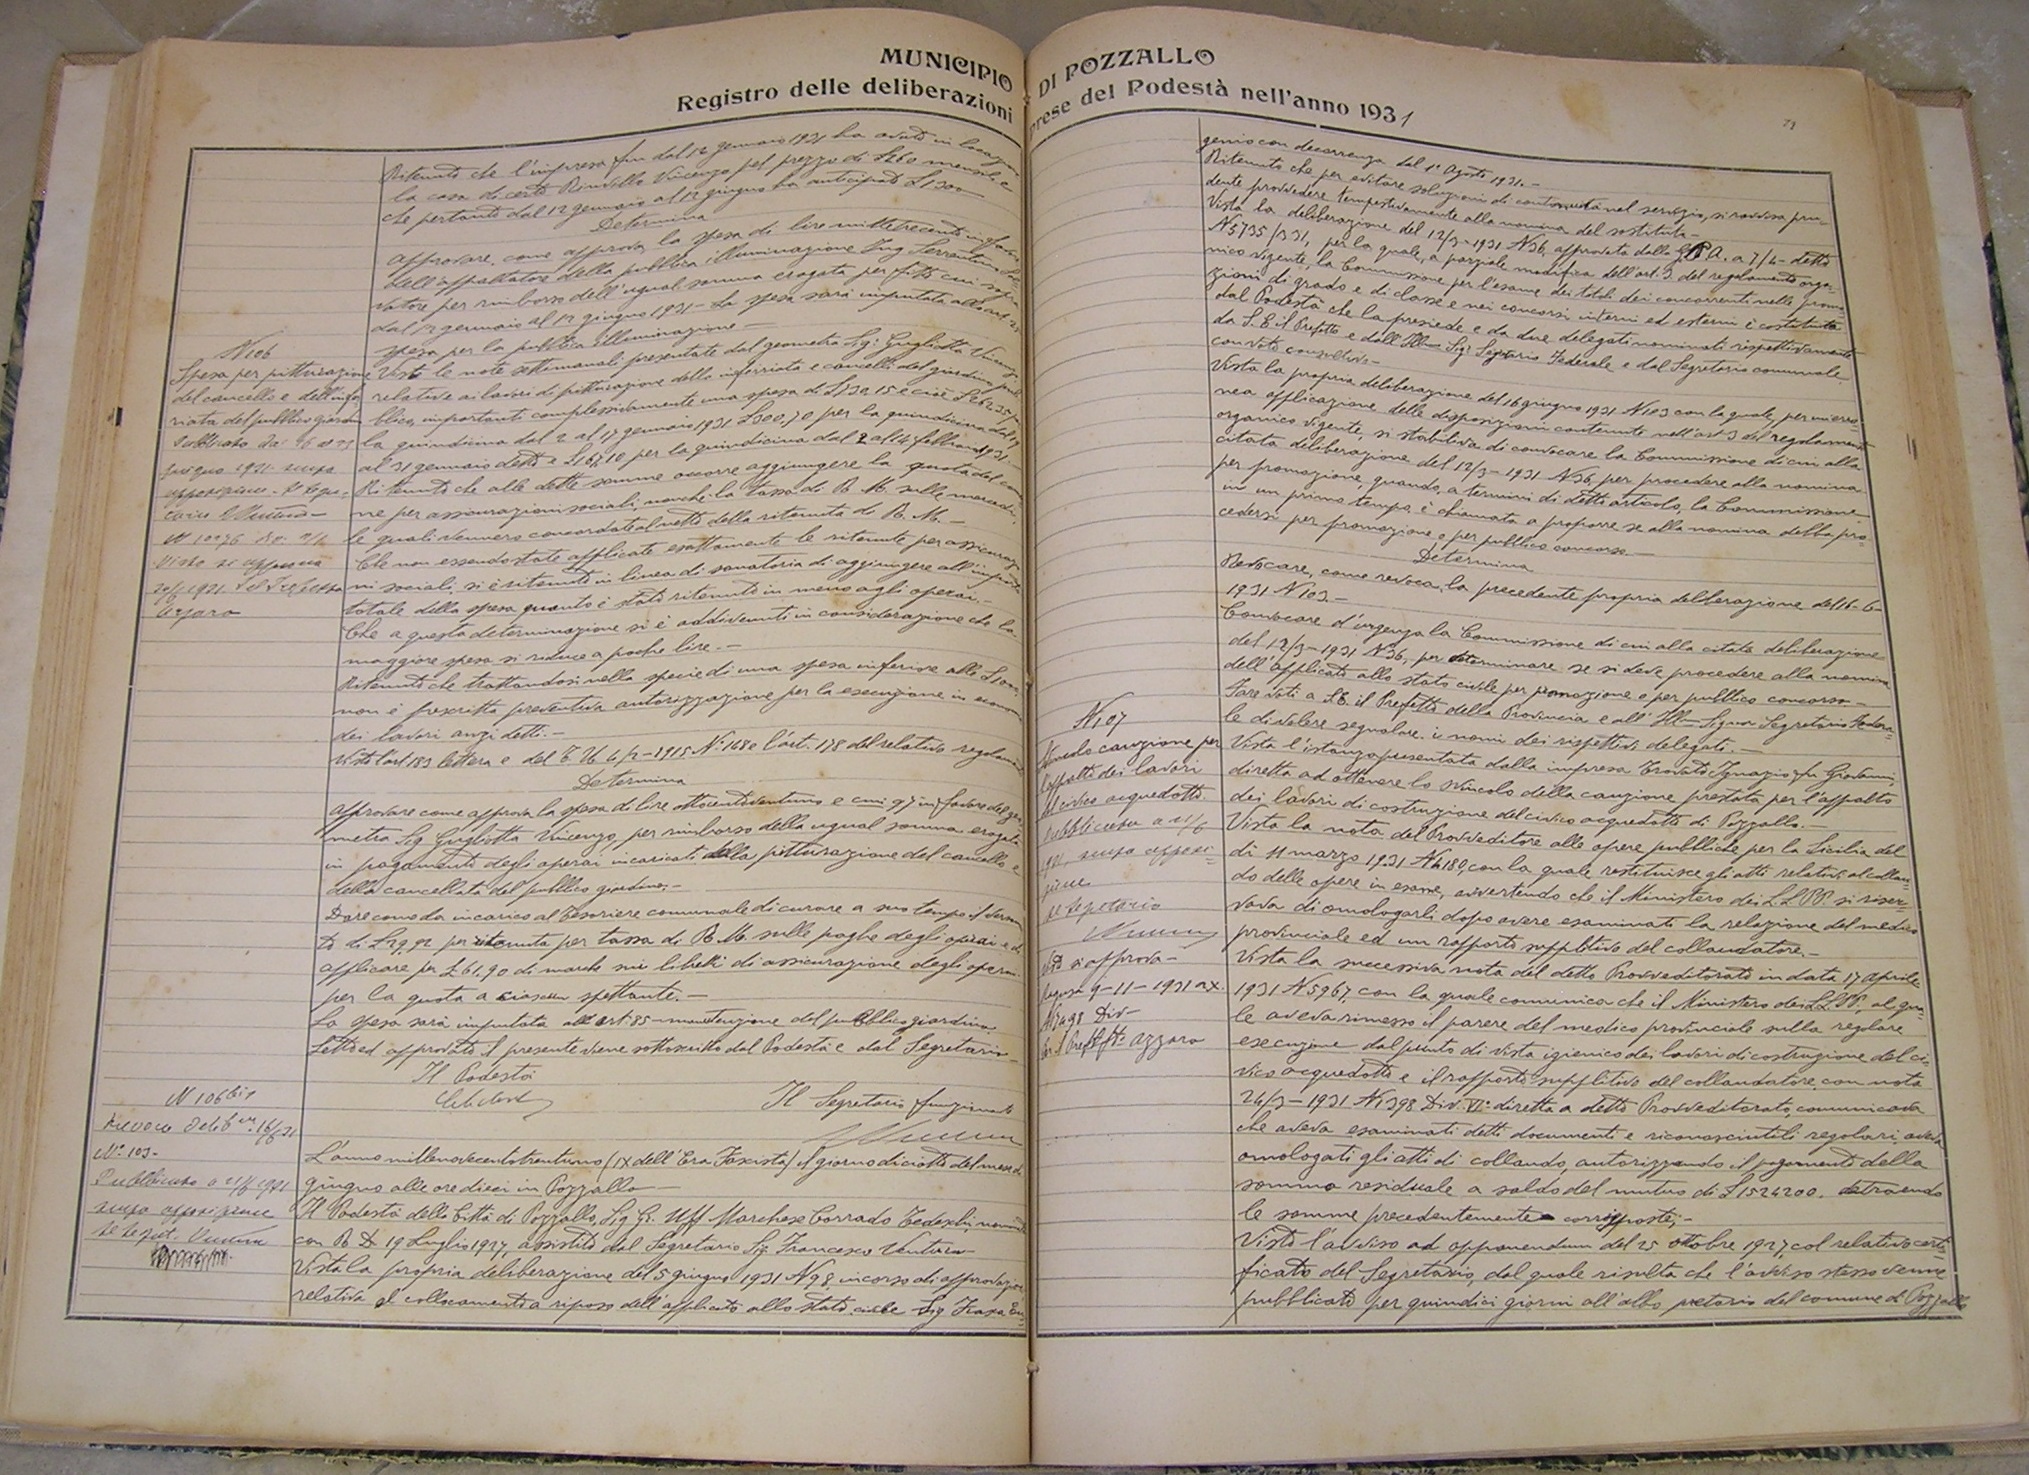 MUNICIPIO DI POZZALLO
Registro delle deliberazioni prese del Podestà nell'anno 1931
Ritenuto che l'impresa fin dal 12 gennaio 1931 ha avuto in
la casa di certo Vincenzo pel prezzo di £ 260 mensili e
che pertanto dal 12 gennaio al 12 giugno ha anticipato £ 1300
Determina
approvare, come approva, la spesa di lire milletrecento in favore
dell'appaltatore della pubblica illuminazione Ing Serrentino
vatore per rimborso dell'ugual somma erogata per fitti cui sopra
dal 12 gennaio al 12 giugno 1931 - La spesa sarà imputata all'art
spesa per la pubblica illuminazione -
N 106
Spesa per pitturazione
del cancello e dell'infer
riata del pubblico giardino
Pubblicato
giugno 1931 senza
opposizione - Il Segre-
tario
Visto si approva
1931 Il Prefetto
Azzaro
Viste le note settimanali presentate dal geometra Sig: Gugliotta Vincenzo
relative ai lavori di pitturazione della inferriata e cancelli del giardino pub
blico, importanti complessivamente una spesa di
la quindicina dal 2 al 17 gennaio 1931 £ 300,70 per la quindicina dal 17
al 31 gennaio detto e per la quindicina dal 2 al 14 febbraio 1931.
Ritenuto che alle dette somme occorre aggiungere la quota del comu
ne per assicurazioni sociali, nonchè la tassa di R. M. sulle mercedi,
le quali vennero concordate al netto della ritenuta di R. M. -
Che non essendo state applicate esattamente le ritenute per assicurazio
ni sociali, si è ritenuto in linea di sanatoria di aggiungere all'importo
totale della spesa quanto è stato ritenuto in meno agli operai. -
Che a questa determinazione si è addivenuti in considerazione che la
maggiore spesa si riduce a poche lire. -
Ritenuto che trattandosi nella specie di una spesa inferiore alle £ 1000
non è prescritta preventiva autorizzazione per la esecuzione in econom
dei lavori anzi detti. -
Visto l'art 183 lettera e del T. U. 4/2-1915 N. 148 e l'art. 178 del relativo regolam
Determina
approvare come approva la spesa di lire ottocentoventuno e cmi 97 in favore del geo
metra Sig Gugliotta Vincenzo, per rimborso della ugual somma erogata
in pagamento degli operai incaricati della pitturazione del cancello e
della cancellata del pubblico giardino. -
Dare come da incarico al Tesoriere comunale di curare a suo tempo il versa
to di £ 29,92 per ritenuta per tassa di R. M. sulle paghe degli operai e di
applicare per £ 61.90 di marche sui libretti di assicurazione degli operai
per la quota a ciascun spettante. -
La spesa sarà imputata all'art: 85 - manutenzione del pubblico giardino.
Letto ed approvato il presente viene sottoscritto dal Podestà e dal Segretario -
Il Podestà
Il Segretario funzionante
N 106 bis
Revoca delib ne 16/6 31
N. 103 -
Pubblicato a 21/6 1931
senza opposizione
Il Segret. Ventura
L'anno millenovecentotrentuno (IX dell'Era Fascista) il giorno diciotto del mese di
giugno alle ore dieci in Pozzallo -
Il Podestà della Città di Pozzallo, Sig Gr. Uff Marchese Corrado Tedeschi nomin
con R D 19 Luglio 1927, assistito dal Segretario Sig. Francesco Ventura -
Vista la propria deliberazione del 5 giugno 1931 N 98, in corso di approvazione
relativa al collocamento a riposo dell'applicato allo stato civile Sig Iraxa Eu=
genio con decorrenza dal 1° Agosto 1931. -
Ritenuto che per evitare soluzioni di continuità nel servizio, si ravvisa pru-
dente provvedere tempestivamente alla nomina del sostituto -
Vista la deliberazione del 12/3-1931 N 36, approvata dalla G.P.A. a 7/4 - detto
N 5735/931, per la quale, a parziale modifica dell'art. 3 del regolamento orga-
nico vigente, la Commissione per l'esame dei titoli dei concorrenti nelle promo
zioni di grado e di classe e nei concorsi interni ed esterni è costituita
dal Podestà che la presiede e da due delegati nominati rispettivamente
da S.E il Prefetto e dall'Illmo Sig: Segretario Federale e dal Segretario comunale
con voto consultivo -
Vista la propria deliberazione del 16 giugno 1931 N 103 con la quale, per un'erro-
nea applicazione delle disposizioni contenute nell'art. 3 del regolamento
organico vigente, si stabiliva di convocare la Commissione di cui alla
citata deliberazione del 12/3-1931 N 36, per procedere alla nomina
per promozione, quando, a termini di detto articolo, la Commissione
in un primo tempo, è chiamata a proporre se alla nomina debba pro-
cedersi per promozione o per pubblico concorso -
Determina
Revocare, come revoca, la precedente propria deliberazione del 16-6-
1931 N 103 -
Convocare d'urgenza la Commissione di cui alla citata deliberazione
del 12/3-1931 N 36, per determinare se si deve procedere alla nomina
dell'applicato allo stato civile per promozione o per pubblico concorso -
Fare voti a S.E. il Prefetto della Provincia e all'Illmo Signor Segretario Federa=
le di volere segnalare i nomi dei rispettivi delegati. -
N 107
Svincolo cauzione per
l'appalto dei lavori
del civico acquedotto
Pubblicata a 21/6
931, senza opposi=
zione
Il Segretario
Visto si approva -
Ragusa 9-11-1931 a X.
N Div -
Per il Prefetto fto Azzaro
Vista l'istanza presentata dalla impresa Trovato Ignazio fu Giovanni,
diretta ad ottenere lo svincolo della cauzione prestata per l'appalto
dei lavori di costruzione del civico acquedotto di Pozzallo. -
Vista la nota del Provveditore alle opere pubbliche per la Sicilia del
dì 11 marzo 1931 N 4180, con la quale restituisce gli atti relativi al collau-
do delle opere in esame, avvertendo che il Ministero dei LL.PP. si riser-
vava di omologarli dopo avere esaminati la relazione del medico
provinciale ed un rapporto suppletivo del collaudatore. -
Vista la successiva nota del detto Provveditorato in data 17 aprile
1931 N 5967, con la quale comunica che il Ministero dei LL.PP., al qua-
le aveva rimesso il parere del medico provinciale sulla regolare
esecuzione dal punto di vista igienico dei lavori di costruzione del ci-
vico acquedotto e il rapporto suppletivo del collaudatore, con nota
24/3-1931 N 1398 Div. VI: diretta a detto Provveditorato, comunicava
che aveva esaminati detti documenti e riconosciutili regolari, aveva
omologati gli atti di collaudo, autorizzando il pagamento della
somma residuale a saldo del mutuo di £ 1524200, detraendo
le somme precedentemente corrisposte; -
Visto l'avviso ad opponendum del 25 ottobre 1927, col relativo certi=
ficato del Segretario, dal quale risulta che l'avviso stesso venne
pubblicato per quindici giorni all'albo pretorio del comune di Pozzallo